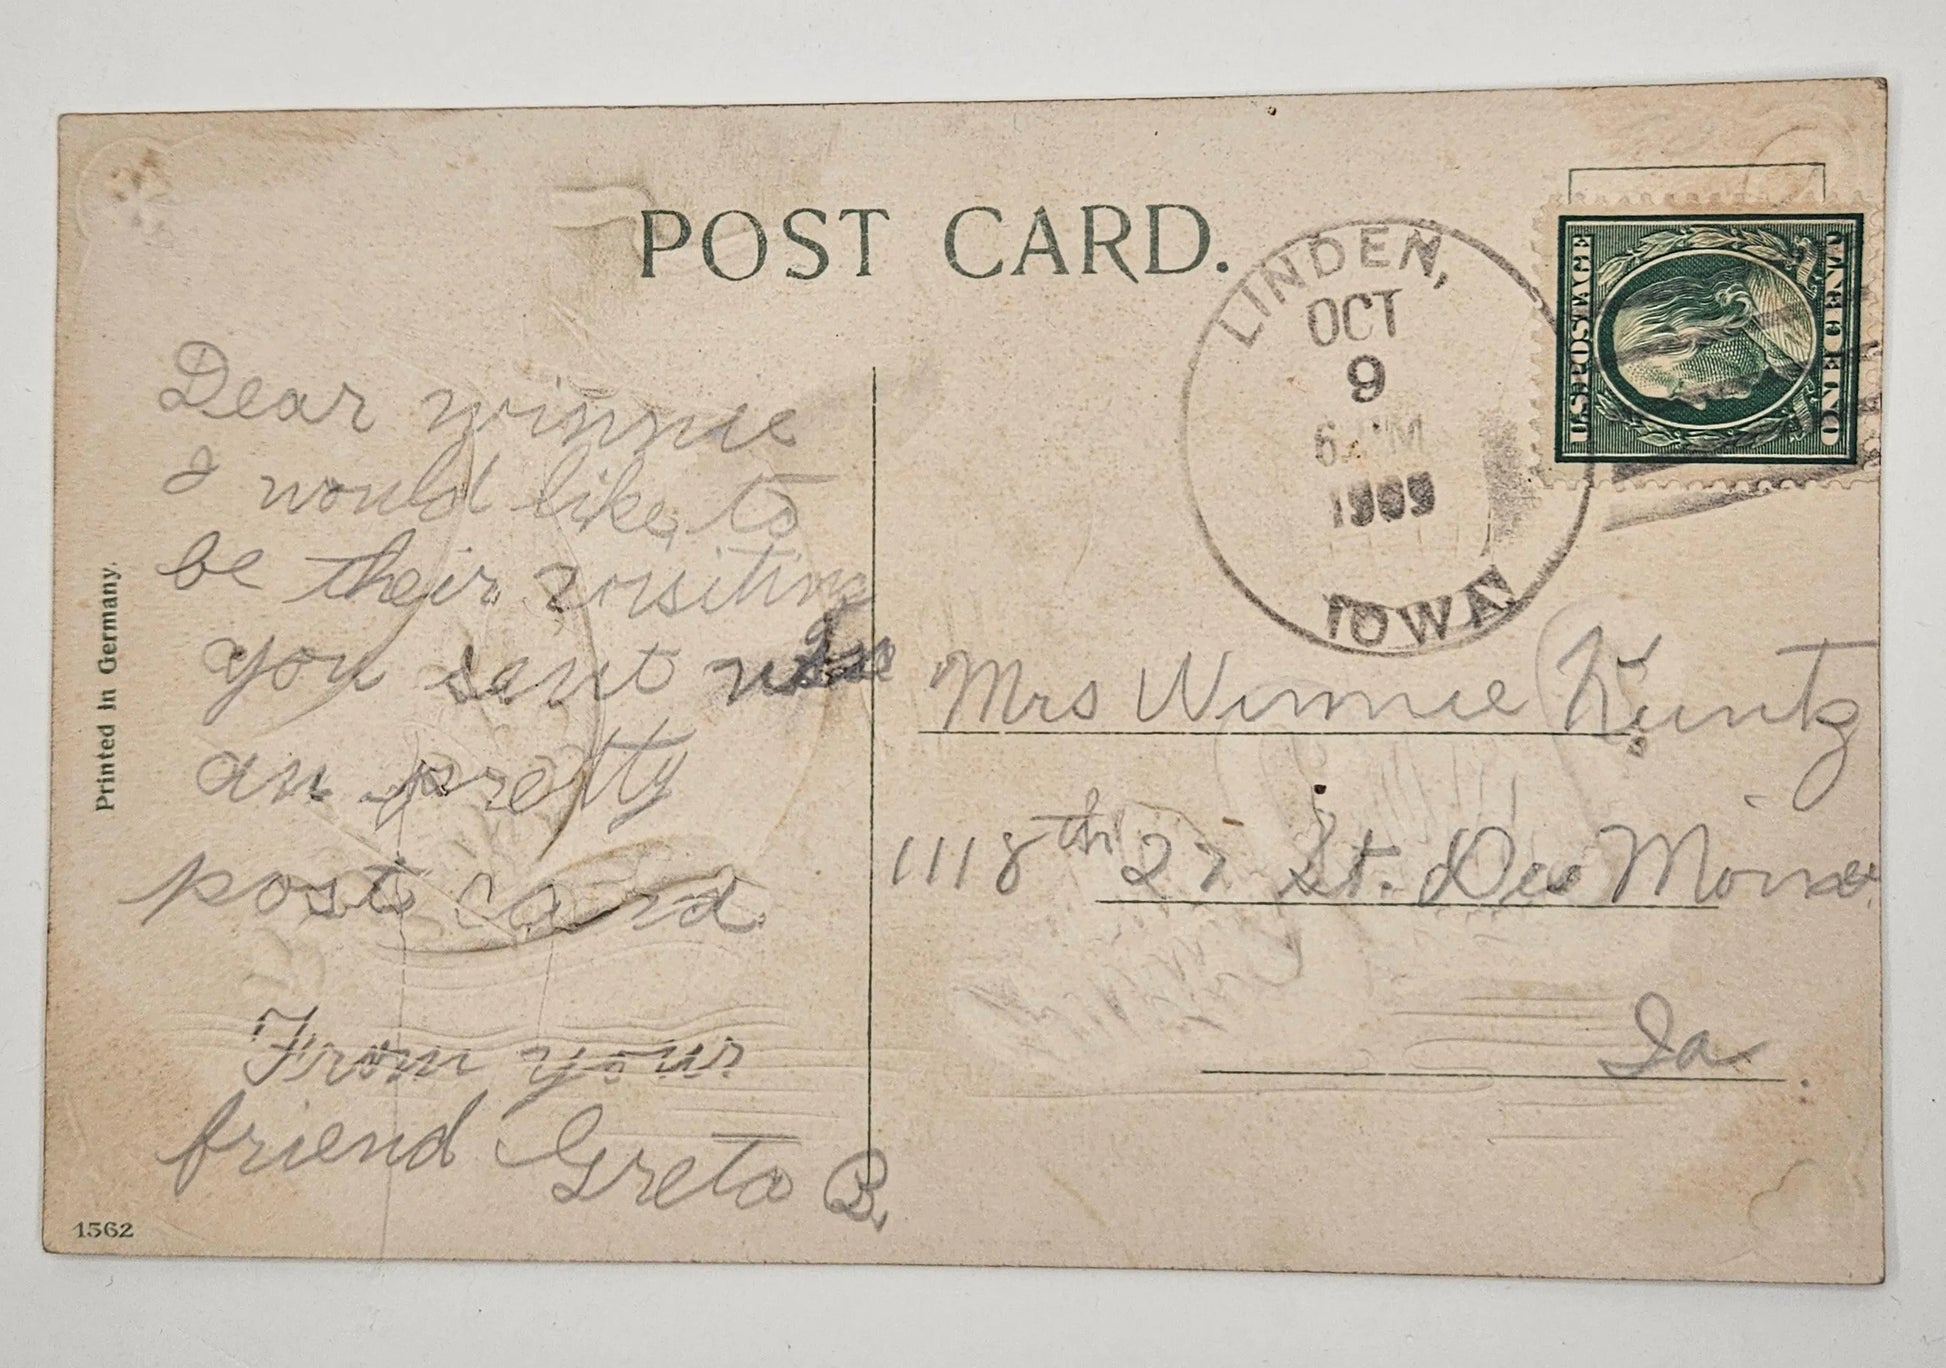 POST CARD.
LINDEN,
OCT
9
6 M
1909
IOWA
U.S. POSTAGE
ONE CENT
Dear Winnie
I would like to
be their visiting
you sent
an pretty
post card
From your
friend Greta B.
Mrs Winnie Kuntz
1118th 27 St. Des Moines
Ia
Printed in Germany.
1562